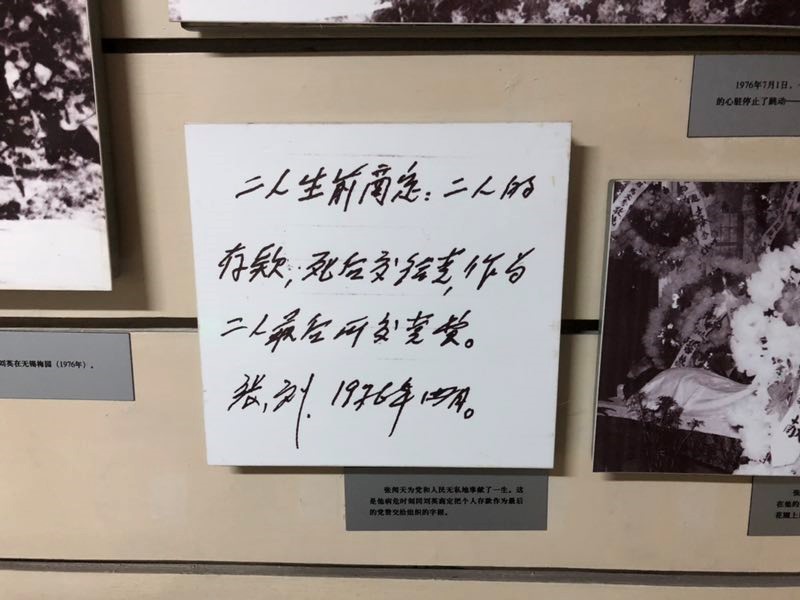 1976年7月1日，
的心脏停止了跳动——
二人生前商定：二人的
存款，死后交给党，作为
二人最后所交党费。
张，刘．1976年四月。
刘英在无锡梅园（1976年）。
张闻天为党和人民无私地奉献了一生。这
是他病危时刻同刘英商定把个人存款作为最后
的党费交给组织的字据。
张
在他的
花圈上